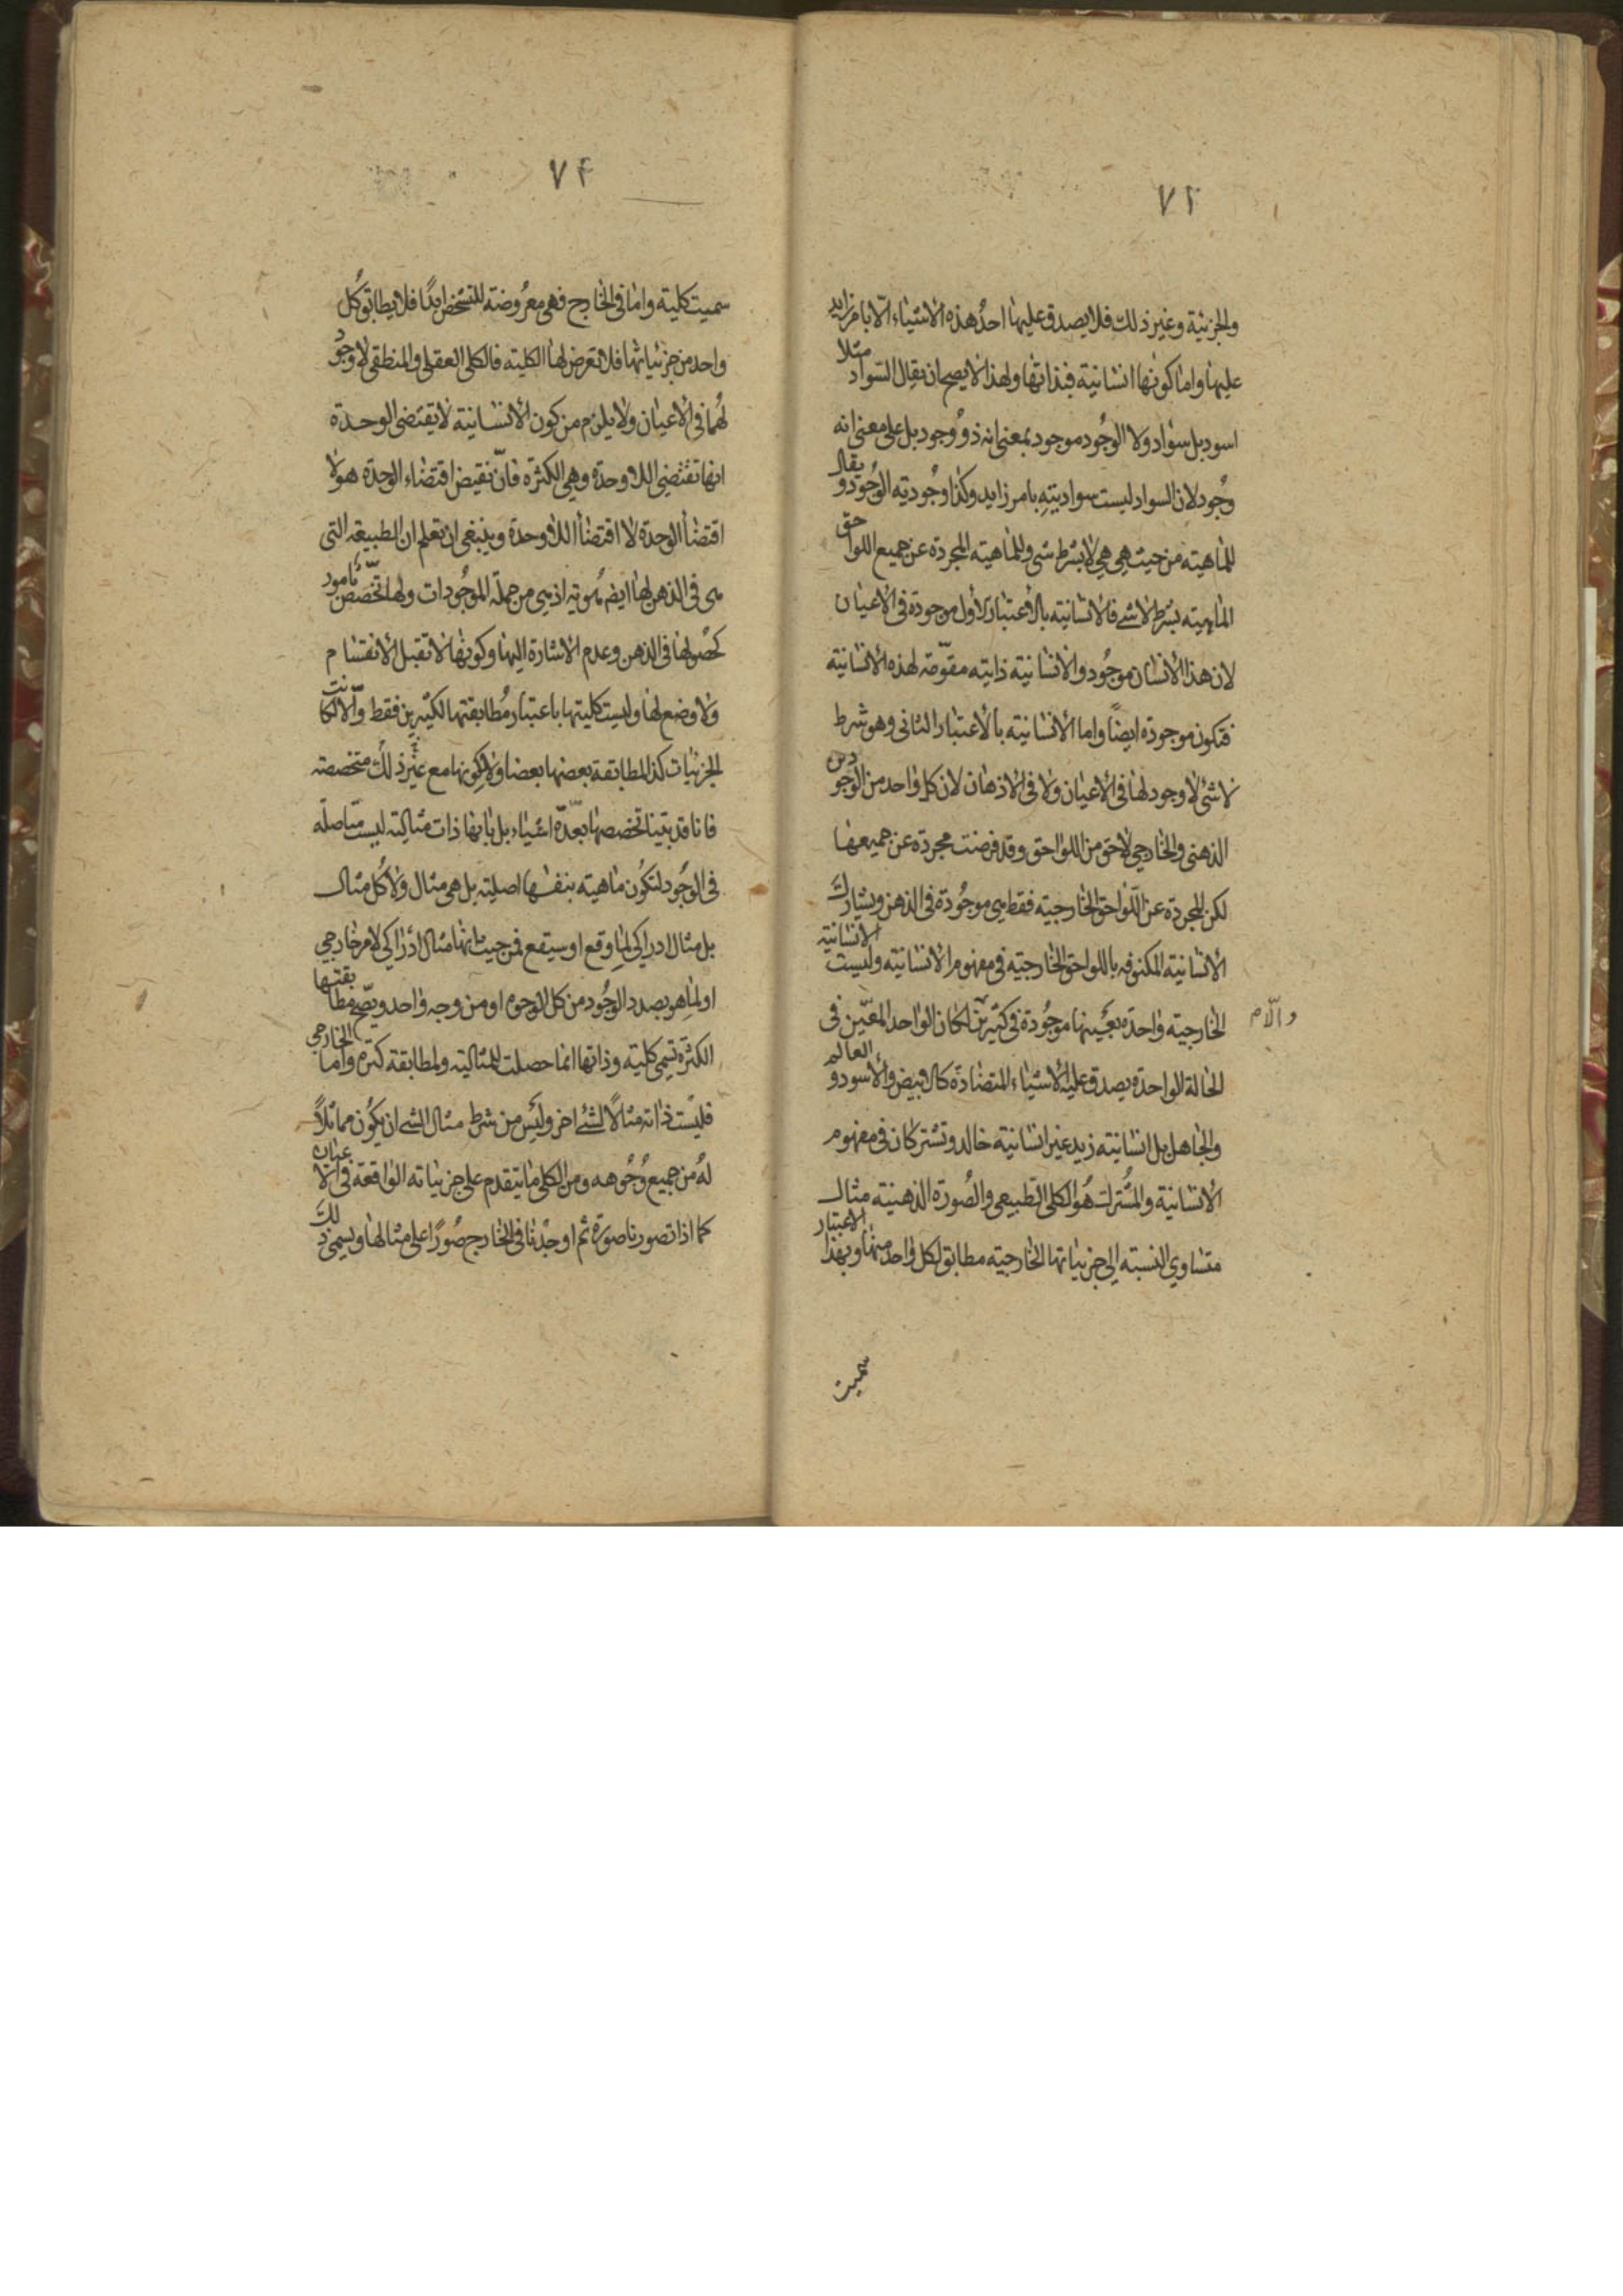 ٧٣
والجزئية وغير ذلك فلا يصدق عليها احدُ هذه الاشياء الّا بامر زايد
عليها واما كونها انسانية فبذاتها ولهذا لا يصح ان يقال السّواد مثلا
اسود بل سواد ولا الوجُود موجود بمعنى انه ذو وُجود بل على معنى انه
وجُود لان السواد ليست سواديته بامر زايد وكذا وجُوديته الوجُود و يقال
للماهيته من حيث هي هي لا بشرط شى وللماهيته المجردة عن جميع اللواحق
الماهيته بشرط لا شے فالانسانيته بالاعتبار الاول موجودة فى الاعيان
لان هذا الانسان موجُود والانسانية ذاتيه مقوّمة لهذه الانسانية
فتكون موجودة ايضًا واما الانسانيته بالاعتبار الثانى وهو شرط
لا شئ لا وجود لها فى الاعيان ولا فى الاذهان لان كل واحد من الوجودين
الذهنى والخارجي لاحق من اللواحق وقد فرضت مجردة عن جميعها
لكن المجردة عن اللّواحق الخارجيته فقط هى موجُودة فى الذهن ويشارك
الانسانية المكنوفه باللواحق الخارجيته فى مفهوم الانسانيته وليست الانسانيّة
الخارجيته واحدة بعَينها موجُودة فى كثيرين والّا لكان الواحد المعيّن فى
الحالة الواحدة يصدق عليه الاشياء المتضادّة كالابيض والاسود و العالم
والجاهل بل انسانيته زيد غير انسانية خالد وتشتركان فى مفهوم
الانسانية والمشترك هُو الكلى الطبيعى والصُورة الذهنيته مثال
متساوي النسبته الى جزئياتها الخارجيته مطابق لكل واحد منها وبهذا الاعتبار
سميت
٧٤
سميت كلية واما فى الخارج فهى معرُوضة للتشخص ابدًا فلا يطابق كُل
واحد من جزئياتها فلا تعرض لها الكليته فالكلى العقلى والمنطقى لا وجُود
لهُما فى الاعيان ولا يلزم من كون الانسانية لا يقتضى الوحدة
انها تقتضى اللا وحدة وهي الكثرة فانّ نقيض اقتضاء الوحدة هو لا
اقتضأ الوحدة لا اقتضأ اللا وحدة وينبغى ان تعلم ان الطبيعة التى
هى فى الذهن لها ايضا هُويته اذ هى من جملة الموجُودات ولها تخّصص بامور
كحصُولها فى الذهن وعدم الاشارة اليها وكونها لا تقبل الانقسام
ولا وضع لها وليست كليتها باعتبار مُطابقتها لكثيرين فقط والّا لكانت
الجزئيات كذا لمطابقة بعضها بعضا ولا لكونها مع غير ذلك متخصصة
فانا قد بيّنا تخصصها بعدّة اشياء بل بانها ذات مثاليته ليست متاصلة
فى الوجُود لتكُون ماهيته بنفسها اصليته بل هى مثال ولا كُل مثال
بل مثال ادراكى لما وقع او سيقع فمن حيث انها مثال ادراكى لامر خارجي
او لما هو بصدد الوجُود من كل الوجوه او من وجه واحد ويصّح مطابقتها
الكثرة تسمى كليته وذاتها انما حصلت للمثاليته ولمطابقة كثره واما الخارجي
فليست ذاته مثالًا لشئ اخر وليَس من شرط مثال الشے ان يكُون مماثلًا
لهُ من جميع وُجُوهه ومن الكلى ما يتقدم على جزئياته الواقعة فى الاعيان
كما اذا تصورنا صورة ثم اوجدْنا فى الخارج صُورًا على مثالها ويسمى ذلك